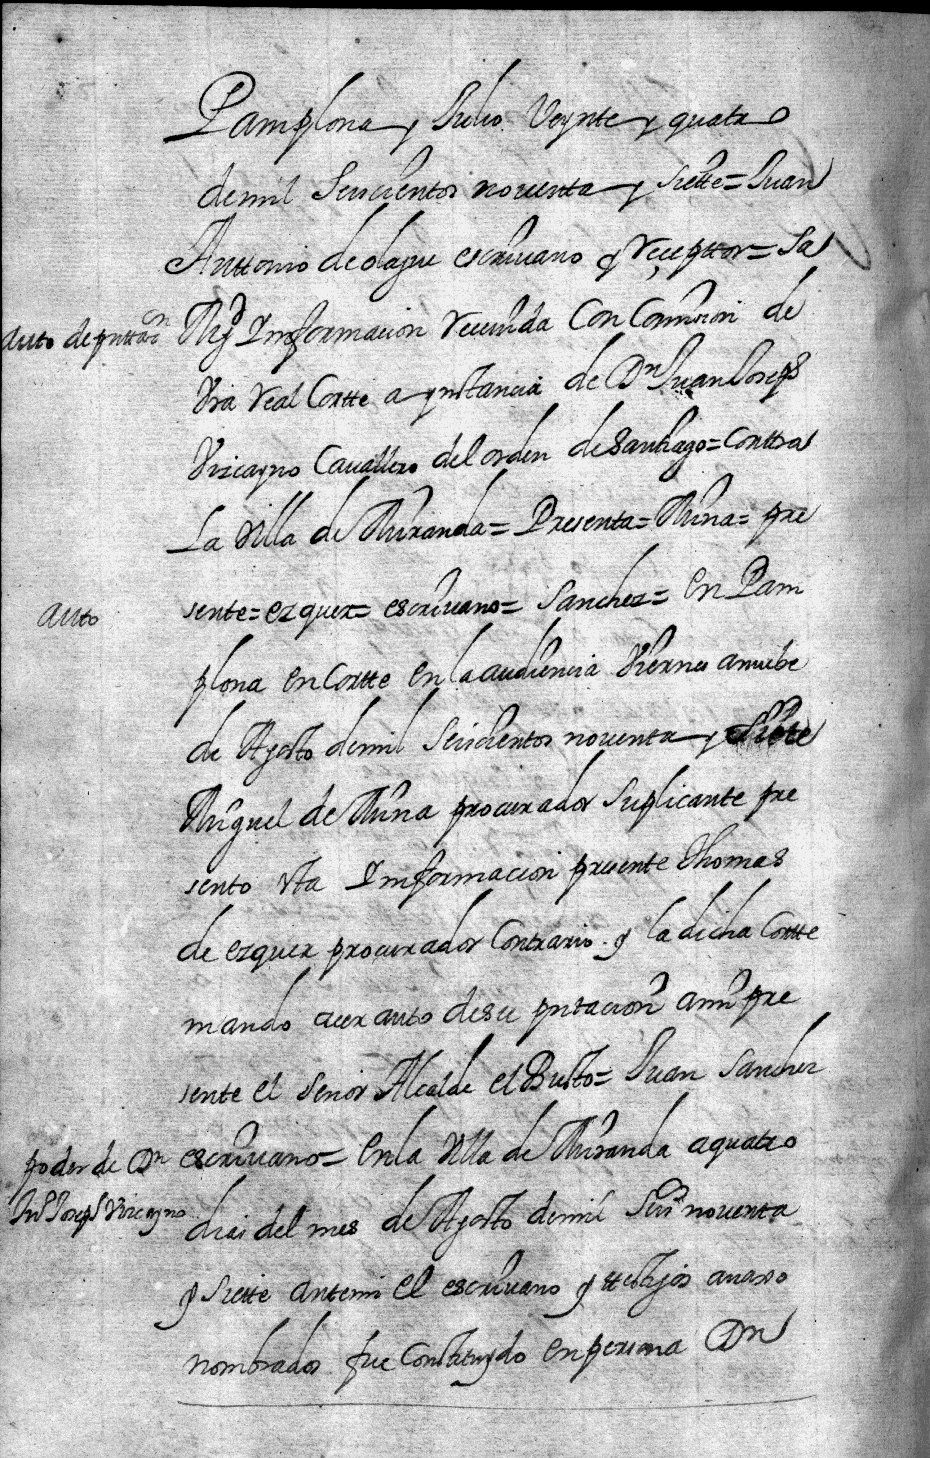 Pamplona y Julio Veynte y quatro
de mil Seiscientos noventa y siette = Juan
Anttonio de olague escriuano y Receptor = Sa
auto de pnttaon
Mgd Informacion Receuida Con Comision de
Vra Real Cortte a ynstancia de Dn Juan Joseph
Vizcayno Cauallero del orden de Santiago = Conttra
La Villa de Miranda = Presenta = Mina = pre
auto
sente = ezquer = escriuano = Sanchez = en Pam
plona en Cortte en la audiencia Viernes a nuebe
de Agosto de mil Seiscientos noventa y siete
Miguel de Mina procurador Suplicante pre
sento sta Informacion presente Thomas
de ezquer procurador Contrario. y la dicha Cortte
mando acer auto de su pntacion a mi pre
sente el Senor Alcalde el Busto = Juan Sanchez
poder de Dn
Jun Joseph Vizcayno
escriuano = En la Villa de Miranda a quatro
dias del mes de Agosto de mil Seiss noventa
y Siette ante mi el escriuano y ttestigos auaxo
nombrados fue Constituydo en persona Dn